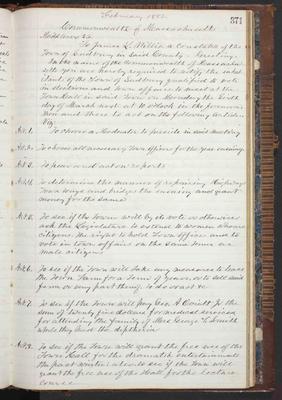 February 1882.
371
Commonwealth of Massachusetts
Middlesex SS.
To James L. Willis a Constable of the
Town of Sudbury in said County Greeting.
In the name of the Commonwealth of Massachu
setts you are hereby required to notify the inhab
itants of the Town of Sudbury qualified to vote
in elections and Town affairs to meet at the
Town Hall in said Town on Monday the
day of March next at 10 o'clock in the forenoon
then and there to act on the following Articles
Viz.
Art. 1. To choose a Moderator to preside in said meeting
Art. 2. To choose all necessary Town Officers for the year ensuing.
Art. 3. To hear and act on reports
Art. 4. To determine the manner of repairing Highways
Town ways and bridges the ensuing and grant
money for the same
Art. 5. To see if the Town will by its vote or otherwise
ask the Legislature to extend to women who are
citizens the right to hold Town office and to
vote in town affairs on the same terms as
male citizens
Art. 6. To see if the Town will take any measures to lease
the Town Farm for a term of years or to sell said
farm or any part thereof, or do or act &c
Art. 7. To see if the Town will pay Geo. A. Jr the
sum of twenty five dollars for medical services
for attending the family of Mr George L. Smith
while they had the diptheria
Art. 8. To see if the Town will grant the free use of the
Town Hall for the dramatic entertainments
the past winter also to see if the town will
grant the free use of the Hall for the lecture
course